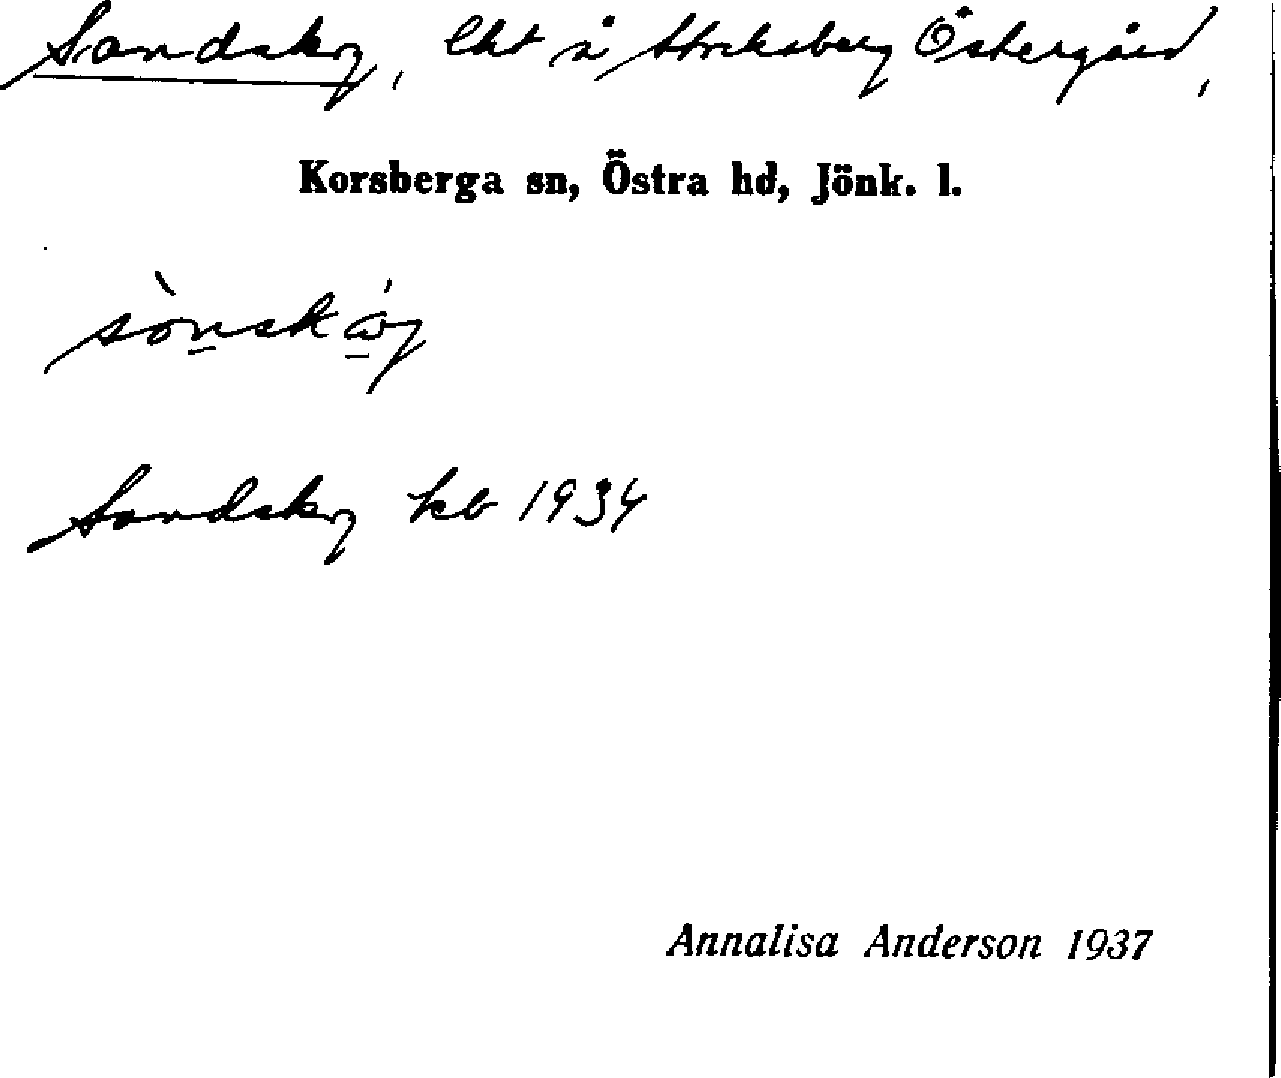 Sandskog, lht å Stocksberg Östergård,
Korsberga sn, Östra hd, Jönk. l.
Sandskog kb 1934
Annalisa Anderson 1937